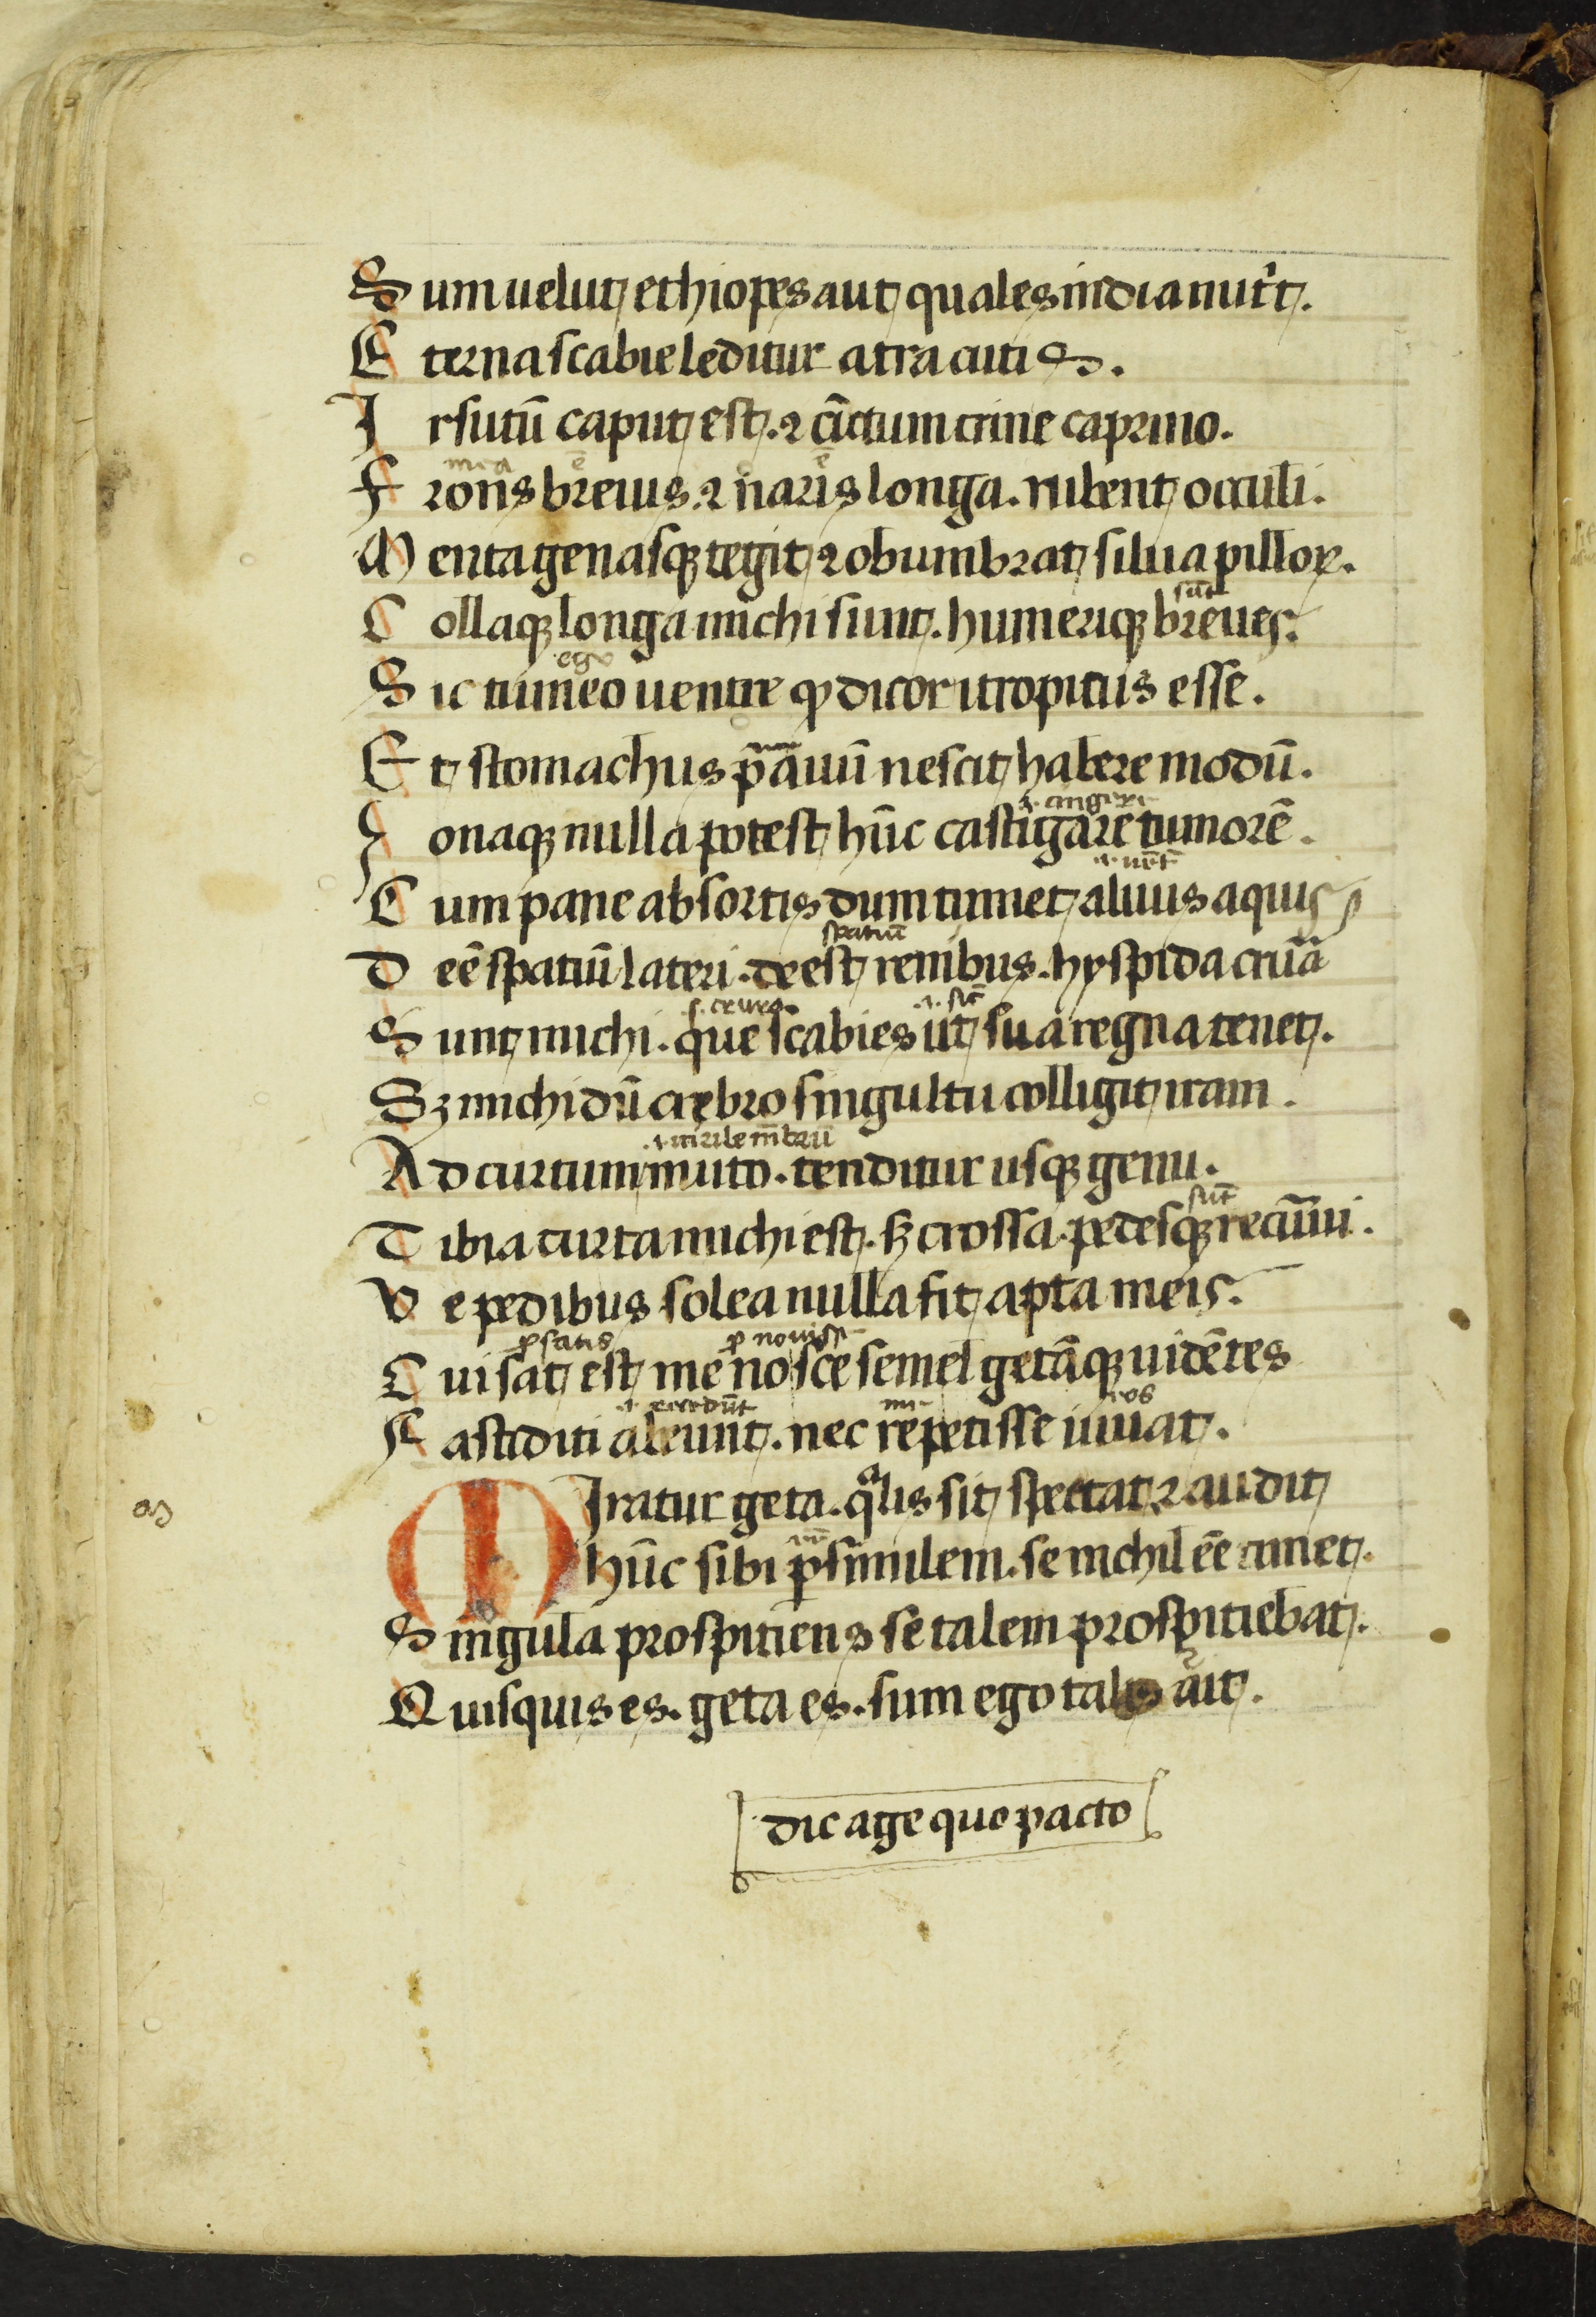 Sum uelut ethiopes aut quales india nutrͥt.
Eterna scabie leditur atra cutis.
Irsutū caput est. ⁊ cı̄ctum crine caprino.
mea ē ē
Frons breuis. ⁊ naris longa. rubent occuli.
Menta genasqꝫ tegit ⁊ obumbrat silua pilloꝝ.
sūt
Collaqꝫ longa michi sunt. humeriqꝫ breues.
ego
Sic tumeo uentre ꝙ dicor itropicus esse.
Et stomachus p̄auuū nescit habere modū.
.i. cingere
Zonaqꝫ nulla potest hūc castigare tumorē.
.i. uēt̄
Cum pane absortis dum tumet aluus aquis
spatiū
Deē spatiū lateri. deest renibus. hyspida crur̄a
.s. crura .i. sic̄
Sunt michi. que scabies ut sua regna tenet.
Sꝫ michi dū crebro singultu colligit iram.
.i. uirile mēbrū
Ad curtum muto. tenditur usqꝫ genu.
sūt
Tibia curta michi est. sꝫ crossa. pedesqꝫ recurui.
Ve pedibus solea nulla fit apta meis.
ꝓ satis ꝓ nouisse
Cui sat est me nosce semel getāqꝫ uidētes
.i. recedūt me eos
Fastiditi abeunt. nec repetisse iuuat.
MIratur geta. qͣlis sit spectat ⁊ audit
hūc sibi ꝑsimilem. se nichil eē timet.
Singula prospitiens se talem prospitiebat.
Quisquis es. geta es. sum ego talis ait.
dic age quo pacto